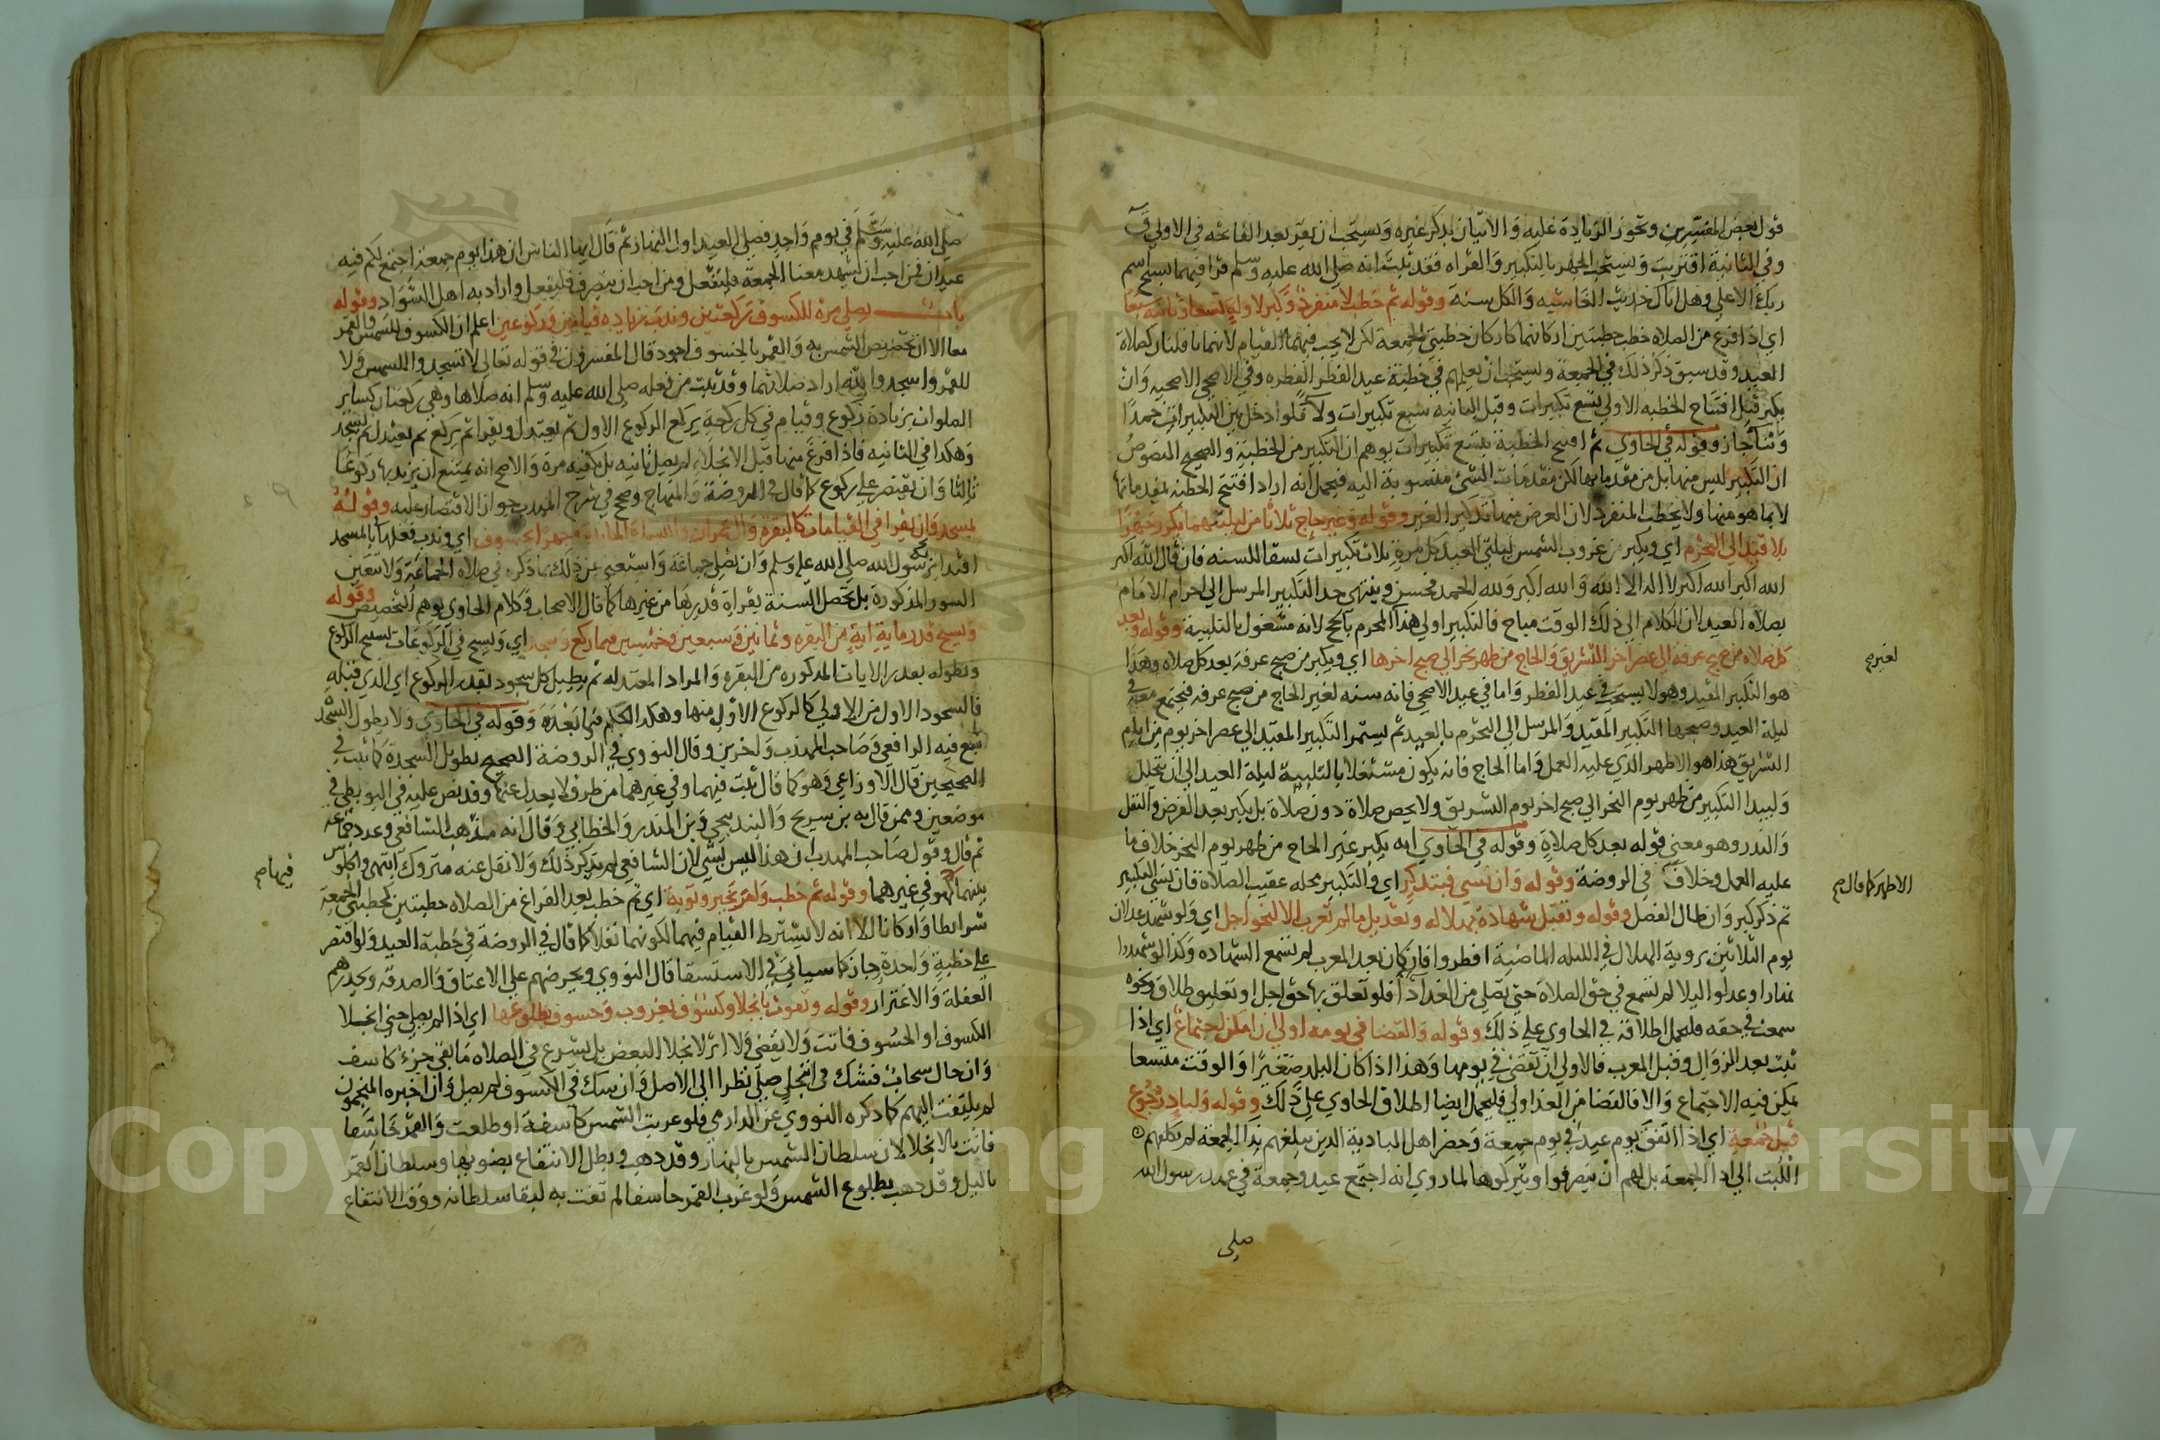 قول بعض المفسرين وتجوز الزيادة عليه والاتيان بذكر غيره ويستحب ان يقرا بعد الفاتحه في الاولي ق
وفي الثانية اقتربت ويستحب الجهر بالتكبير والقراه فقد ثبت انه صلي الله عليه وسلم قرا فيهما بسبح اسم
ربك الاعلي وهل اتاك حديث الغاشيه والكل سنة وقوله ثم خطب لا منفرد وكبر لاولي تسعا وثانية سبعا
اي اذا فرغ من الصلاه خطب خطبتين اركانهما كاركان خطبتي الجمعة لكن لا يجب فيهما القيام لانهما نافلتان كصلاة
العيد وقد سبق ذكر ذلك في الجمعة ويستحب ان يعلمهم في خطبة عيد الفطر الفطره وفي الاضحي الاضحيه وان
يكبر قبل افتتاح الخطبه الاولي تسع تكبيرات وقبل الثانيه سبع تكبيرات ولا فلو ادخل بين التكبيرات حمدا
وثنا جاز وقوله في الحاوي ثم افتتح الخطبة بتسع تكبيرات يوهم ان التكبير من الخطبة والصحيح المنصوص
ان التكبير ليس منها بل من مقدماتها لكن مقدمات الشئ منسوبة اليه فيحمل انه اراد افتتح الخطبه بمقدماتها
لا بما هو منها ولا يخطب المنفرد لان الغرض منها تذكير الغير وقوله وغير حاج ثلاثا من ليلتيهما يكرر جهرا
بلا قيد الي التحرم اي ويكبر من غروب الشمس ليلتي العيد كل مرة ثلاث تكبيرات نسقا للسنه فان قال الله اكبر
الله اكبر الله اكبر لا اله الا الله والله اكبر ولله الحمد فحسن وينتهي حد التكبير المرسل الي احرام الامام
بصلاة العيد لان الكلام الي ذلك الوقت مباح فالتكبير اولي هذا المحرم بالحج لانه مشغول بالتلبية وقوله وبعد
كل صلاه من صبح عرفة الي عصر اخر التشريق والحاج من ظهر نحر الي صبح اخرها اي ويكبر من صبح عرفة بعد كل صلاه وهذا
هو التكبير المقيد وهو لا يستحب في عيد الفطر واما في عيد الاضحي فانه سنه لغير الحاج من صبح عرفه فيجتمع معه في
ليلة العيد وصبحها التكبير المقيد والمرسل الي التحرم بالعيد ثم يستمر التكبير المقيد الي عصر اخر يوم من ايام
التشريق هذا هو الاظهر الذي عليه العمل واما الحاج فانه يكون مشتغلا بالتلبية ليلة العيد الي ان يتحلل
وليبدا التكبير من ظهر يوم النحر الي صبح اخر يوم التشريق ولا يخص صلاة دون صلاة بل يكبر بعد الفرض والنفل
والنذر وهو معني قوله بعد كل صلاة وقوله في الحاوي انه يكبر غير الحاج من ظهر يوم النحر خلاف ما
عليه العمل وخلاف في الروضة وقوله وان نسي فيتذكر اي والتكبير محله عقيب الصلاة فان نسي التكبير
ثم ذكر كبر وان طال الفصل وقوله وتقبل شهادة بهلاله وتعديل ما لم تغرب الا لنحو اجل اي ولو شهد عدلان
يوم الثلاثين بروية الهلال في الليله الماضية افطروا فان كان بعد المغرب لم تسمع الشهاده وكذا لو شهدوا
نهارا وعدلوا ليلا لم تسمع في حق الصلاة حتي تصلي من الغد ادا فلو تعلق بها حق اجل او تعليق طلاق ونحوه
سمعت في حقه فليحمل اطلاقه في الحاوي علي ذلك وقوله والقضا في يومه اولي ان امكن اجتماع اي اذا
ثبت بعد الزوال وقبل المغرب فالاولي ان تقضي في يومها وهذا اذا كان البلد صغيرا والوقت متسعا
يمكن فيه الاجتماع والا فالقضا من الغد اولي فليحمل ايضا اطلاق الحاوي علي ذلك وقوله ولباد رجوع
قبل جمعة اي اذا اتفق يوم عيد في يوم جمعة وحضر اهل البادية الذين يبلغهم ندا الجمعة لم يكلفهم
اللبث الي اداء الجمعة بل لهم ان ينصرفوا ويتركوها لما روي انه اجتمع عيد وجمعة في عهد رسول الله
صلي
لغير صح
الاظهر كما قال صح
صلي الله عليه وسلم في يوم واحد فصلي العيد اول النهار ثم قال ايها الناس ان هذا يوم جمعة اجتمع لكم فيه
عيدان فمن احب ان يشهد معنا الجمعة فليفعل ومن احب ان ينصرف فليفعل واراد به اهل السواد وقوله
باب يصلي مرة للكسوف ركعتين وندب زياده قيامين وركوعين اعلم ان الكسوف للشمس والقمر
معا الا ان تخصيص الشمس به والقمر بالخسوف اجود قال المفسرون في قوله تعالي لا تسجدوا للشمس ولا
للقمر واسجدوا لله اراد صلاتهما وقد ثبت من فعله صلي الله عليه وسلم انه صلاها وهي ركعتان كساير
الصلوات بزيادة ركوع وقيام في كل ركعة يركع الركوع الاول ثم يعتدل ويقرا ثم يركع ثم يعتدل ثم يسجد
وهكذا في الثانيه فاذا فرغ منها قبل الانجلاء لم يصل ثانيه بل يكفيه مرة والاصح انه يمتنع ان يزيد بها ركوعا
ثالثا وان يقتصر علي ركوع كما قال في الروضة والمنهاج وصحح في شرح المهذب جواز الاقتصار عليه وقوله
بمسجد وان يقرا في القيامات كالبقرة وال عمران والنساء والمائدة وجهر لخسوف اي وندب فعلها بالمسجد
اقتداء برسول الله صلي الله عليه وسلم وان تصلي جماعة واستغني عن ذلك بما ذكره في صلاة الجماعة ولا تتعين
السور المذكورة بل تحصل السنة بقراة قدرها من غيرها كما قال الاصحاب وكلام الحاوي يوهم التخصيص وقوله
ويسبح قدر ماية اية من البقره وثمانين وسبعين وخمسين فيما ركع وسجد اي ويسبح في الركوعات تسبيح الركوع
ويطوله بقدر الايات المذكوره من البقره والمراد المعتدله ثم يطيل كل سجود بقدر الركوع اي الذي قبله
فالسجود الاول من الاولي كالركوع الاول منها وهكذا الحكم فيما بعده وقوله في الحاوي ولا يطول السجد
تبع فيه الرافعي وصاحب المهذب واخرين وقال النووي في الروضة الصحيح تطويل السجدة كما ثبت في
الصحيحين قال الاوزاعي وهو كما قال ثبت فيهما وفي غيرهما من طرق لا يعدل عنها وقد نص عليه في البويطي في
موضعين وممن قال به بن سريج والبندنيجي وبن المنذر والخطابي وقال انه مذهب الشافعي وعدد جماعة
ثم قال وقول صاحب المهذب ان هذا ليس بشي لان الشافعي لم يذكر ذلك ولا نقل عنه متروك انتهي والجلوس
بينهما كهو في غيرهما وقوله ثم خطب ولغر تخير وتوبة اي ثم خطب بعد الفراغ من الصلاه خطبتين كخطبتي الجمعة
شرايطا واركانا الا انه لا يشترط القيام فيهما لكونهما نفلا كما قال في الروضة في خطبة العيد ولو اقتصر
علي خطبة واحدة جاز كما سياتي في الاستسقا قال النووي ويحرضهم علي الاعتاق والصدقه ويحذرهم
الغفلة والاغترار وقوله وتفوت بانجلا وكسوف بغروب وخسوف بطلوعها اي اذا لم يصل حتي انجلا
الكسوف او الخسوف فاتت ولا يقضي ولا اثر لانجلا البعض بل يشرع في الصلاه ما بقي جزء كاسف
وان حال سحاب فشك في انجل صلي نظرا الي الاصل وان شك في الكسوف لم يصل وان اخبره المنجمون
لم يلتفت اليهم كما ذكره النووي عن الدارمي فلو غربت الشمس كاسفة او طلعت والقمر خاسفا
فاتت بالانجلا لان سلطان الشمس بالنهار وقد ذهب وبطل الانتفاع بضوءها وسلطان القمر
بالليل وقد ذهب بطلوع الشمس ولو غرب القمر خاسفا لم تفت به لبقا سلطانه ووقت الانتفاع
فيها صح
Copyright © King Saud University